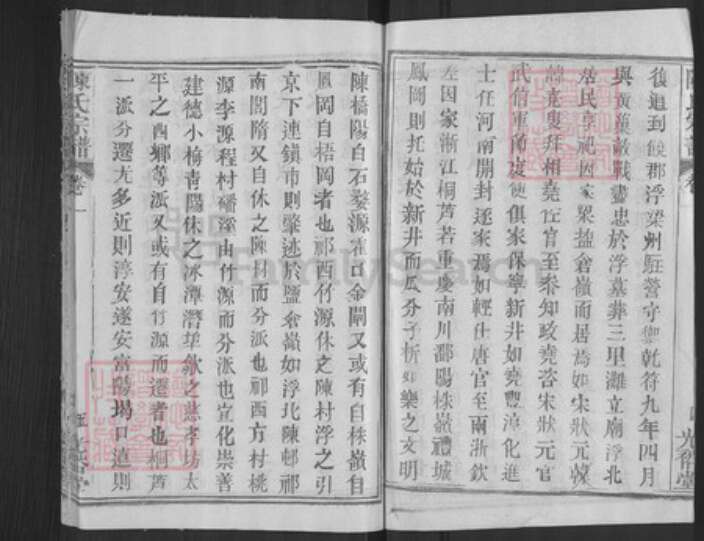 後追到饒郡浮梁州駐營守禦乾符九年四月
與黃巢敵戰盡忠於浮墓葬三里灘立廟浮北
居民享祀因家眾盆倉嶺而居焉如宋狀元
堯叟拜相堯佐官至參知政堯咨宋狀元官
武信軍節度使俱家保寧新井如堯豐淳化進
士任河南開封遂家焉如輕仕唐官至南浙欽
差因家浙江桐芦若重慶南川鄱陽株嶺禮城
鳳岡則托始於新井而瓜分子析如樂之文明
陳氏宗譜
卷一
陳橋陽自石藜源霍口金閘又或有自株嶺自
鳳岡自梧岡者也祁西竹源休之陳村浮之引
京下連鎮市則肇迹於鹽倉嶺如浮北陳邨祁
南閣隋又自休之陳村而分派也祁西方村桃
源李源程村磻溪由竹源而分派也宣化崇善
建德小梅青陽休之冰潭潛草歙之慈孝坊太
平之西鄉等派又或有自竹源而遷者也桐芦
一派分遷尤多近則淳安遂安富陽場口遠則
FamilySearch